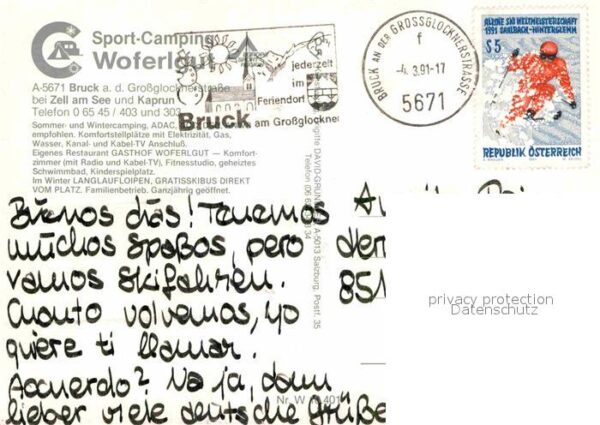 Sport-Camping
Woferlgut
A-5671 Bruck a. d. Großglocknerstraße
bei Zell am See und Kaprun
Telefon 0 65 45 / 403 und 303
Sommer- und Wintercamping, ADAC,
empfohlen. Komfortstellplätze mit Elektrizität, Gas,
Wasser, Kanal- und Kabel-TV Anschluß.
Eigenes Restaurant GASTHOF WOFERLGUT — Komfort-
zimmer (mit Radio und Kabel-TV), Fitnesstudio, geheiztes
Schwimmbad, Kinderspielplatz.
Im Winter LANGLAUFLOIPEN, GRATISSKIBUS DIREKT
VOM PLATZ. Familienbetrieb. Ganzjährig geöffnet.
jederzeit
im
Feriendorf
Bruck am Großglockner
BRUCK AN DER GROSSGLOCKNERSTRASSE
f
-4. 3.91-17
5671
ALPINE SKI WELTMEISTERSCHAFT
1991 SAALBACH-HINTERGLEMM
S 5
REPUBLIK ÖSTERREICH
Buenos días! Tenemos
muchos Spaßos, pero
vamos skifahren.
Cuanto volvemos, yo
quiere ti llamar.
Accuerdo? Na ja, dann
lieber viele deutsche Grüße
851
A-5013 Salzburg, Postf. 35
Nr. W 10.401
privacy protection
Datenschutz